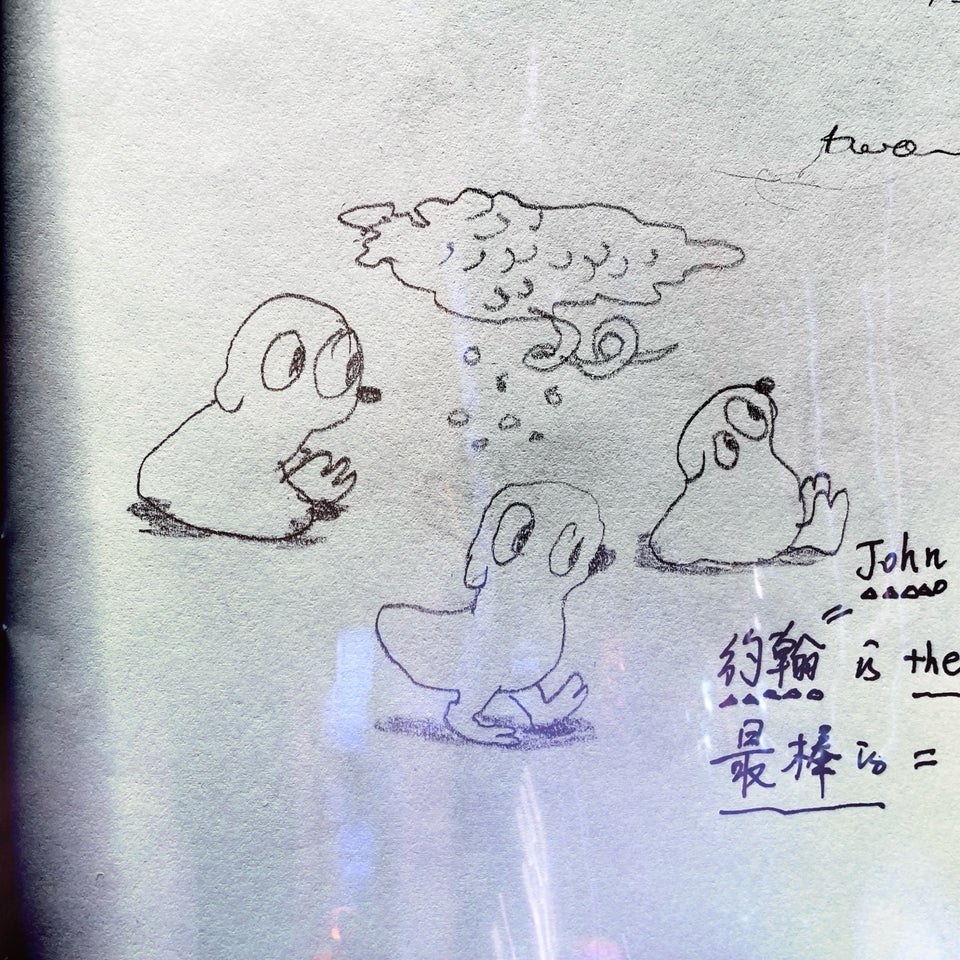 two
John
约翰 is the
最棒 is =